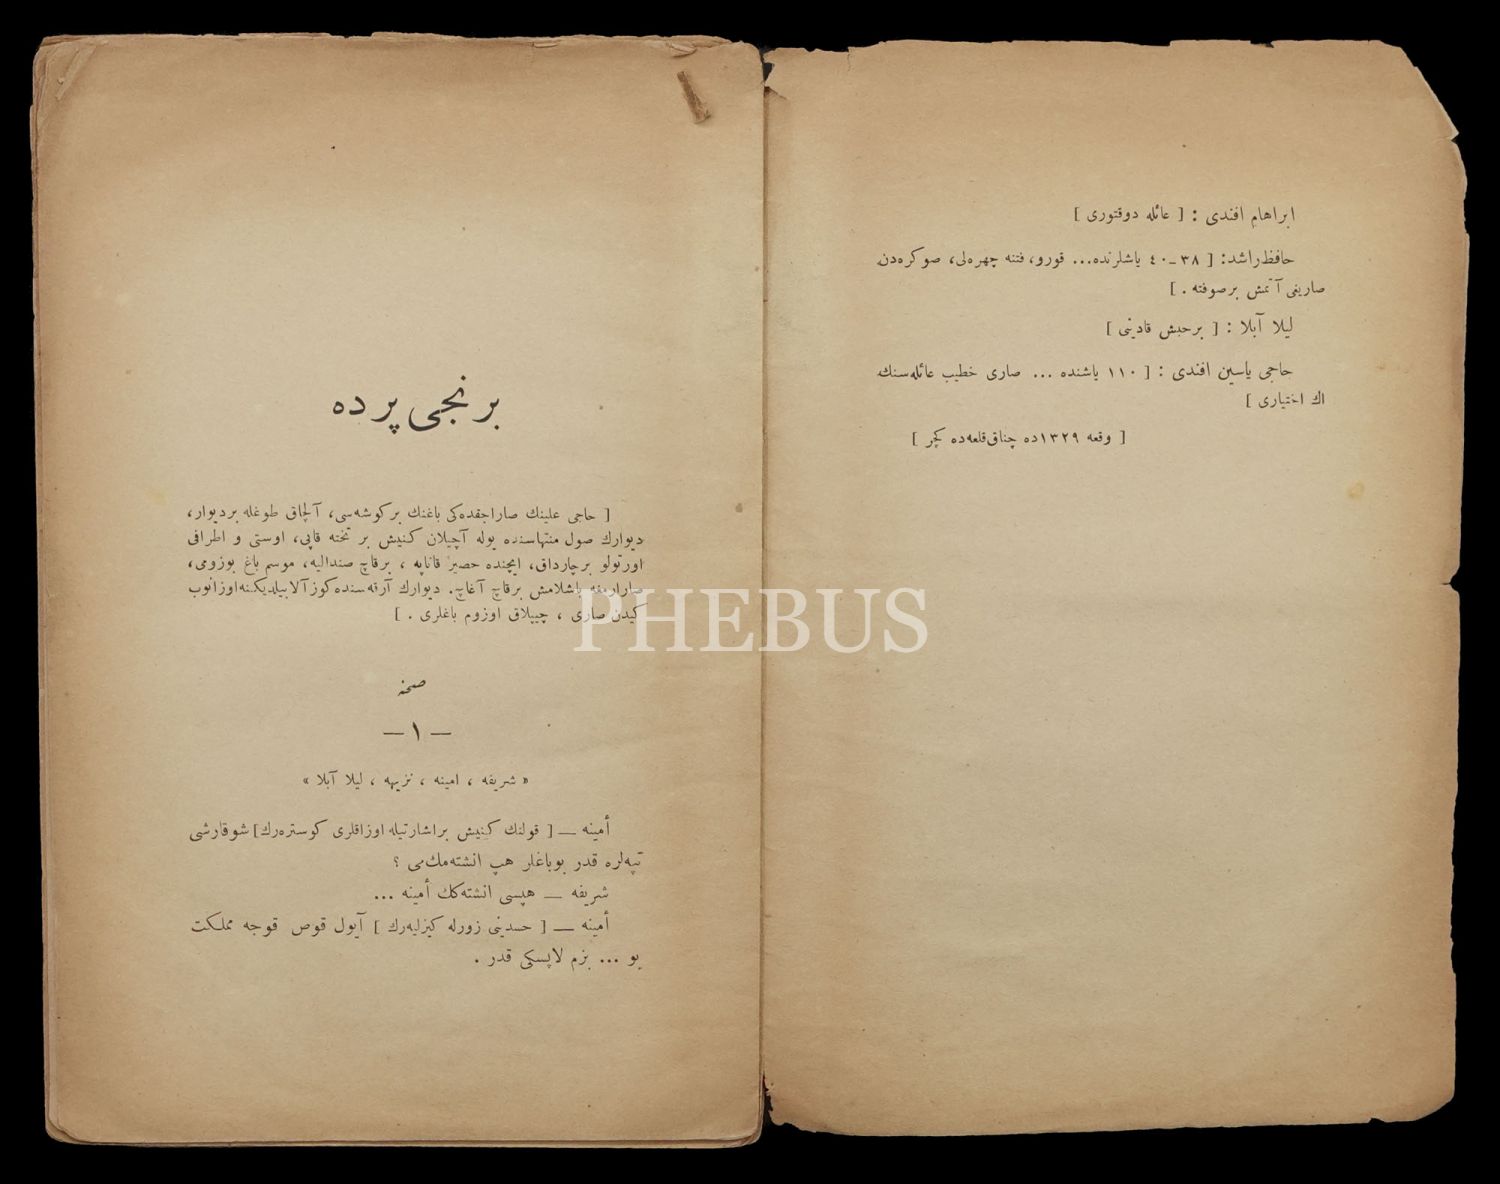 ابراهام افندی : [ عائله دوقتوری ]
حافظ راشد: [ ٣٨-٤٠ یاشلرنده... قورو، فتنه چهره‌لی، صوکره‌دن
صاریغی آتمش برصوفته . ]
لیلا آبلا : [ برحبش قادینی ]
حاجی یاسین افندی : [ ١١٠ یاشنده ... صاری خطیب عائله‌سنك
اك اختیاری ]
[ وقعه ١٣٢٩ده چناق‌قلعه‌ده کچر ]
برنجی پرده
[ حاجی علینك صاراجقده‌کی باغنك برکوشه‌سی، آلچاق طوغله بردیوار،
دیوارك صول منتهاسنده یوله آچیلان کنیش بر تخته قاپی، اوستی و اطرافی
اورتولو برچارداق، ایچنده حصیر قاناپه ، برقاچ صندالیه، موسم باغ بوزومی،
صارارمغه باشلامش برقاچ آغاچ. دیوارك آرقه‌سنده کوز آلابیلدیکنه اوزانوب
کیدن صاری ، چیپلاق اوزوم باغلری . ]
صحنه
— ١ —
« شریفه ، امینه ، نزیهه ، لیلا آبلا »
أمینه — [ قولنك کنیش براشارتیله اوزاقلری کوستره‌رك] شوقارشی
تپه‌لره قدر بوباغلر هپ انشته‌مك‌می ؟
شریفه — هپسی انشته‌كك أمینه ...
أمینه — [ حسدینی زورله کیزلیه‌رك ] آیول قوص قوجه مملکت
بو ... بزم لاپسکی قدر .
PHEBUS